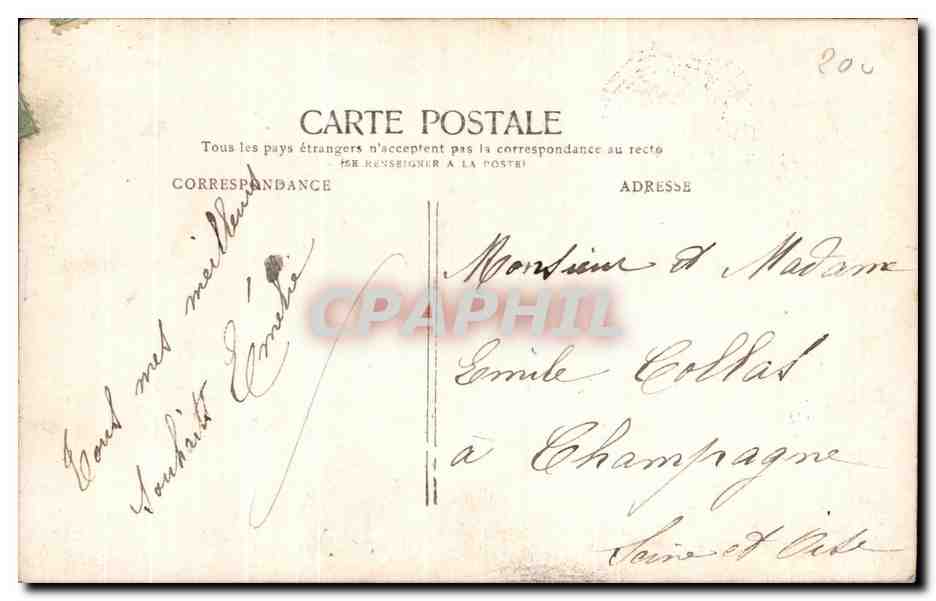 200
CARTE POSTALE
Tous les pays étrangers n'acceptent pas la correspondance au recto
(SE RENSEIGNER A LA POSTE)
CORRESPONDANCE
ADRESSE
Tous mes meilleurs
souhaits
Monsieur et Madame
Emile Collas
à Champagne
Seine et Oise
CPAPHIL